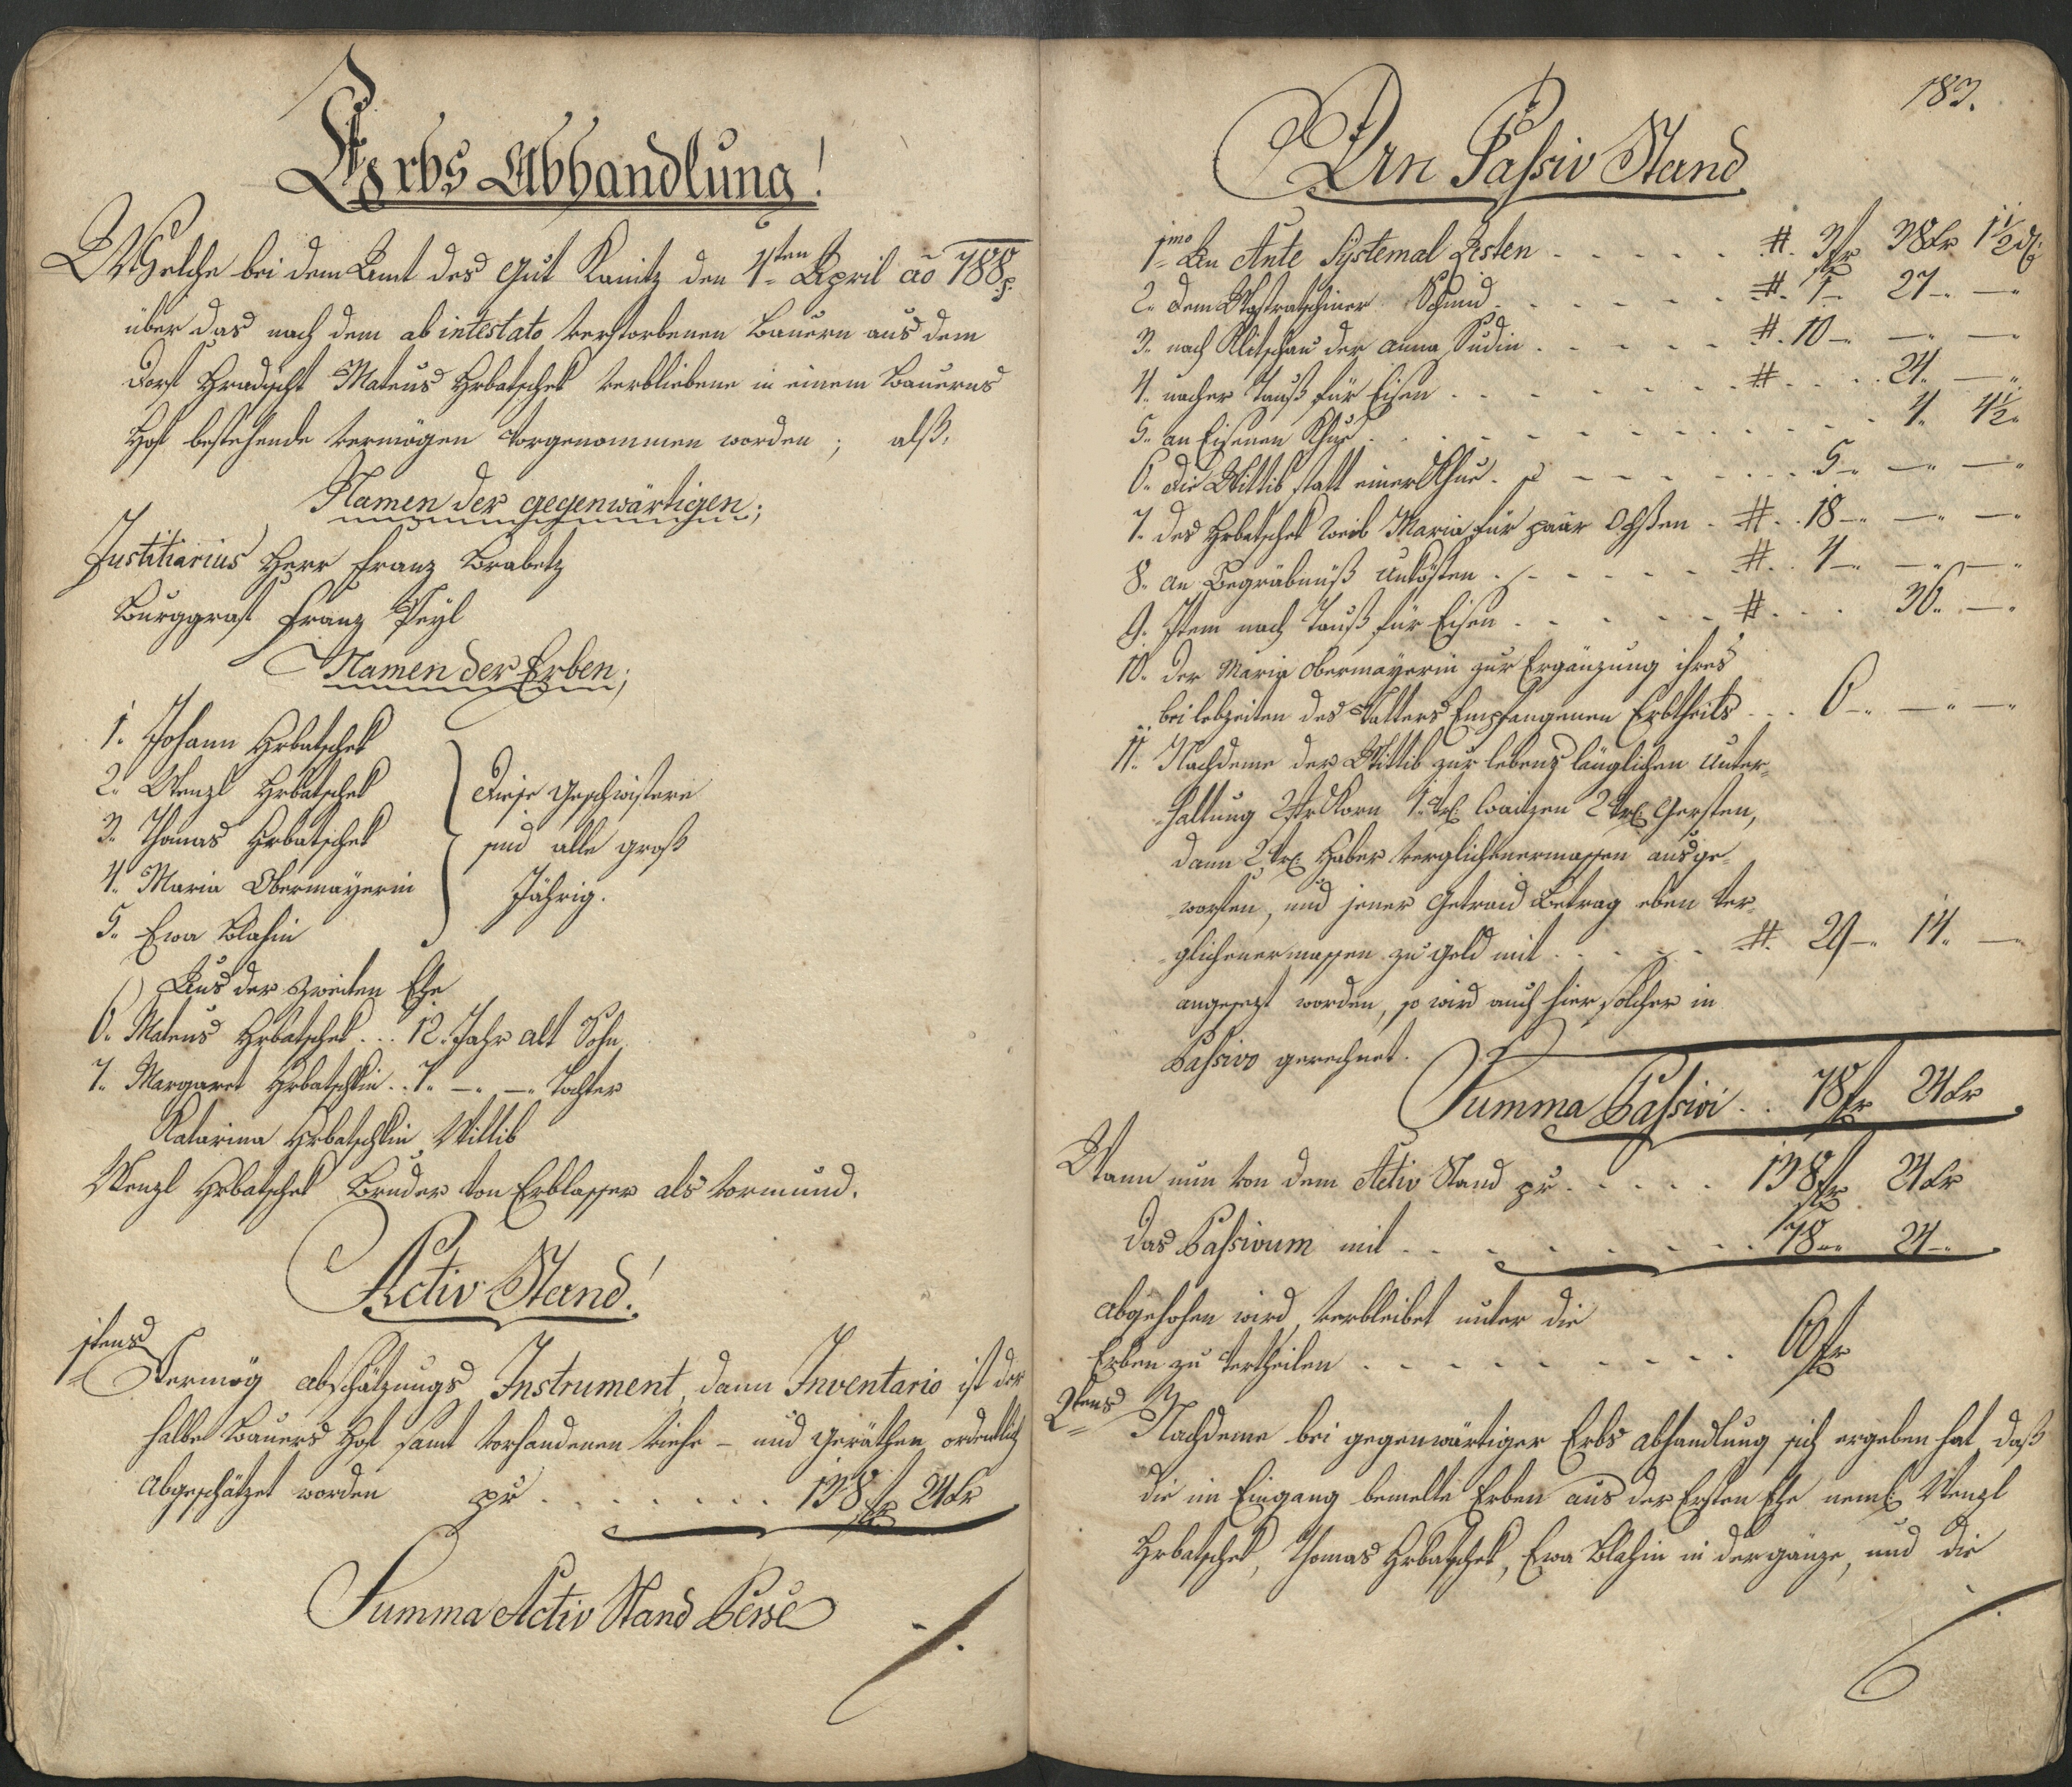 Erbs Abhandlung!
Welche bei dem Amt des Gut Kanitz den 4ten April ao 788.
über das nach dem ab intestato verstorbenen Bauern aus dem
Dorf Hradischt Mateus Hrbatschek verbliebene in einem Bauerns
Hof bestehende vermögen vorgenommen worden; alß.
Namen der gegenwärtigen;
Justitiarius Herr Franz Brabetz
Burggraf Franz Peyl
Namen der Erben;
1. Johann Hrbatschek
2. Wenzl Hrbatschek
3. Thomas Hrbatschek
4. Maria Obermayerin
5. Ewa Blahin
Diese Geschwistere
sind alle groß
Jährig.
Aus der zweiten Ehe
6. Mateus Hrbatschek . . . 12. Jahr alt Sohn
7. Margaret Hrbatschkin . . 7. —. —. Tochter
Katarina Hrbatschkin Wittib
Wenzl Hrbatschek Bruder von Erblasser als Vormund.
Activ Stand!
1stens Vermög abschätzungs Instrument, dann Inventario ist der
halbe Bauers Hof samt vorhandenen viehe- und geräthen ordentlich
abgeschätzet worden pr . . . . . . . 138 fr 24 kr
Summa Activ Stand Per se
183.
Den Passiv Stand
1mo An Ante Systemal Resten . . . . . #. 3 fr 38 kr 1 1/2 d
2. dem Schmid . . . . . . #. 1 — 27 — —
3. nach Klitschau der Anna Sudin . . . . . #. 10 — — —
4. nacher Tauß für Eisen . . . . . . # . . . . 24. —
5. an Eisenen Khue . . . . . . . . . . . 4. 4 1/2
6. die Wittib statt einer Khue . . . . . . . . 5 — — —
7. des Hrbatschek Weib Maria für paar Ochßen . # . . 18 — — —
8. an Begräbnüß Unkösten . . . . . . . #. . 4 — — —
9. Item nach Tauß für Eisen . . . . . . # . . . 36. —
10. der Maria Obermayerin zur Ergänzung ihres
bei lebzeiten des Vatters Empfangenen Erbtheils . . . 6 — — —
11. Nachdeme der Wittib zur lebens länglichen Unter-
haltung 2 Str Korn 1. Str Waitzen 2 Str Gersten,
dann 2 Str Haber verglichenermassen ausge-
worfen, und jener Getraid Betrag eben ver-
glichenermassen zu geld mit . . . . . #. 29 — 14. —
angesezt worden, so wird auch hier solcher in
Passivo gerechnet.
Summa Passivi . . 78 fr 24 kr
Wann nun von dem Activ Stand pr . . . . . 138 fr 24 kr
das Passivum mit . . . . . . . . . . 78 — 24 —
abgezohen wird, verbleibet unter die
Erben zu vertheilen . . . . . . . . . 60 fr
2tens Nachdeme bei gegenwärtiger Erbs abhandlung sich ergeben hat, daß
die im Eingang bemelte Erben aus der Ersten Ehe neml: Wenzl
Hrbatschek, Thomas Hrbatschek, Ewa Blahin in der gänze, und die